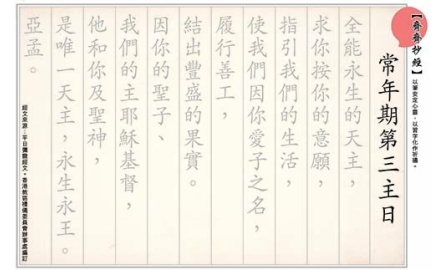 【齊齊抄經】以筆安定心靈，以習字化作祈禱。
常年期第三主日
全能永生的天主，
求你按你的意願，
指引我們的生活，
使我們因你愛子之名，
履行善工，
結出豐盛的果實。
因你的聖子、
我們的主耶穌基督，
他和你及聖神，
是唯一天主，永生永王。
亞孟。
經文來源：平日彌撒經文，香港教區禮儀委員會辦事處編訂